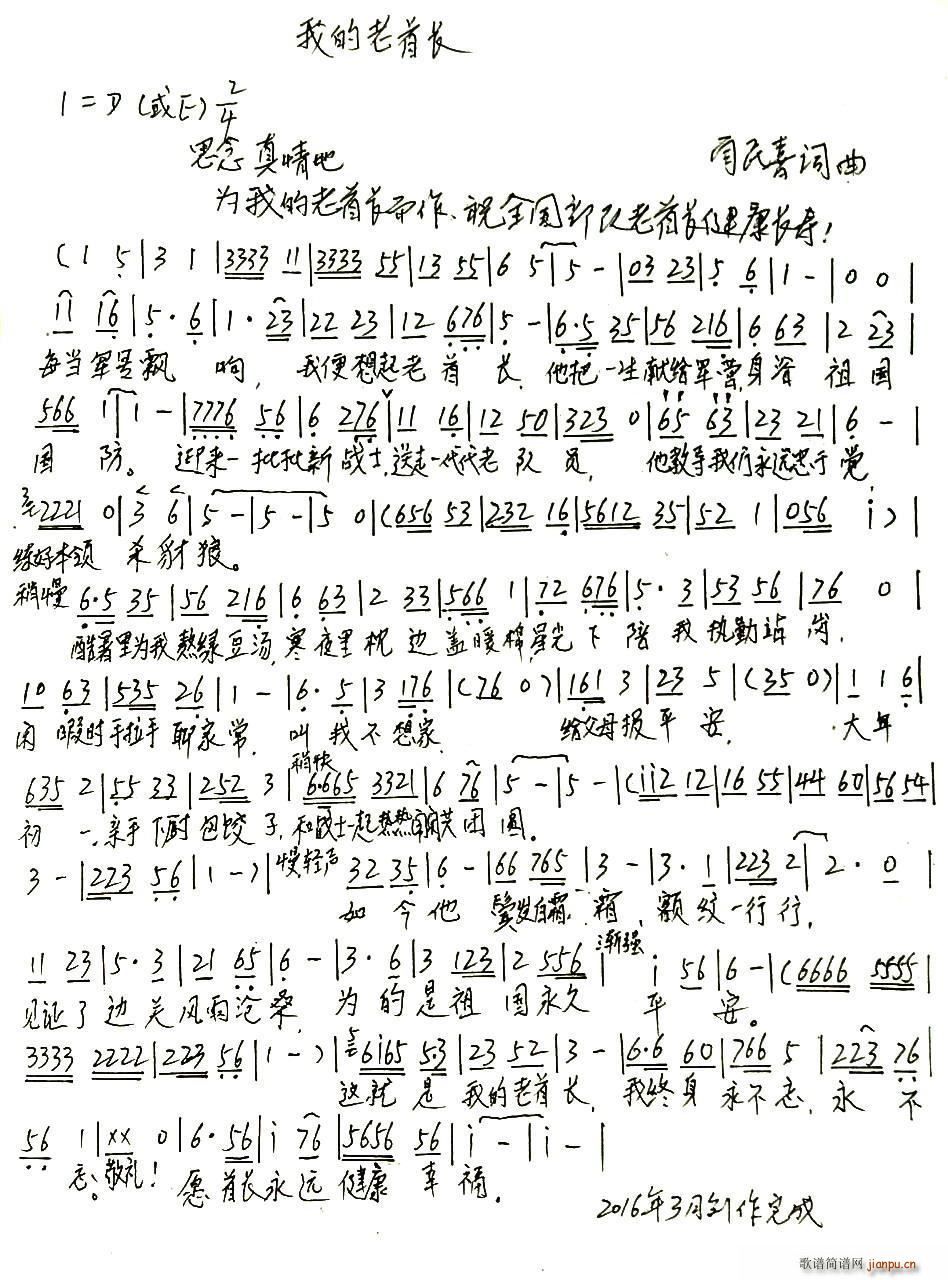 我的老首长
1=D(或E) 2/4
思念 真情地
民喜词曲
为我的老首长而作、祝全国部队老首长健康长寿!
(1 5|3 1|3333 11|3333 55|13 55|6 5|5 -|03 23|5 6|1 -|0 0|
11 16|5· 6|1· 23|22 23|12 676|5 -|6·5 35|56 216|6 63|2 23|
每当军号飘响, 我便想起老首长, 他把一生献给军营身许祖国
566 1|1 -|7776 56|6 276|11 16|12 50|323 0|65 63|23 21|6 -|
国防。迎来一批批新战士,送走一代代老队员, 他教导我们永远忠于党
2221 0|3 6|5 -|5 -|5 0|(656 53|232 16|5612 35|52 1|056 i)|
练好本领 杀豺狼。
稍慢 6·5 35|56 216|6 63|2 33|566 1|72 676|5· 3|53 56|76 0|
酷暑里为我熬绿豆汤,寒夜里枕边盖暖棉,星光下陪我执勤站岗,
10 63|535 26|1 -|6· 5|3 176|(76 0)|161 3|23 5|(35 0)|1 1 6|
闲暇时手拉手聊家常, 叫我不想家, 给父母报平安, 大年
635 2|55 33|252 3|稍快 6·665 3321|6 76|5 -|5 -|(ii2 12|16 55|44 60|56 54|
初一,亲手下厨包饺子,和战士一起热热闹闹共团圆。
3 -|223 56|1 -)|慢轻声 32 35|6 -|66 765|3 -|3· 1|223 2|2· 0|
如今他 鬓发白霜霜, 额纹一行行,
11 23|5· 3|21 65|6 -|3· 6|3 123|2 556|渐强 i 56|6 -|(6666 5555|
见证了边关风雨沧桑, 为的是祖国永久平安。
3333 2222|223 56|1 -)|6i65 5·3|23 52|3 -|6·6 60|766 5|223 76|
这就是我的老首长, 我终身永不忘,永不
56 1|xx 0|6· 56|i 76|5656 56|i -|i -|
忘。敬礼! 愿首长永远健康幸福。
2016年3月创作完成
歌谱简谱网
jianpu.cn